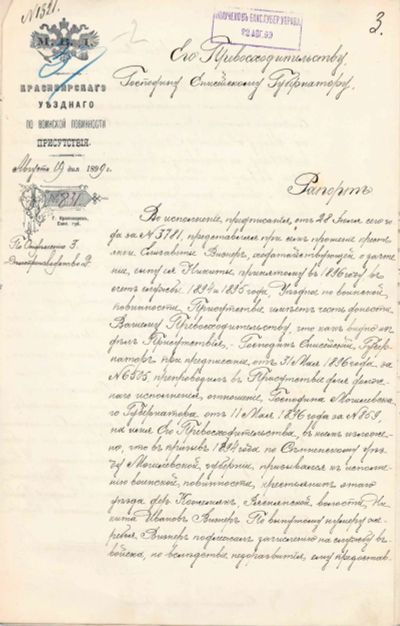 № 1321.
ПОЛУЧЕНО ВЪ ЕНИС. ГУБЕР. УПРАВЛ.
22 АВГ. 99
3.
М. В. Д.
КРАСНОЯРСКАГО
УѢЗДНАГО
ПО ВОИНСКОЙ ПОВИННОСТИ
ПРИСУТСТВІЯ.
Августа 19 дня 1899 г.
№ 831
Г. Красноярскъ,
Енис. губ.
По
Его Превосходительству
Господину Енисейскому Губернатору.
Рапортъ
Во исполненіе предписанія, отъ 28 Іюля сего го-
да за № 3781, представляя при семъ прошеніе кресть-
янки Елизаветы Визнеръ, ходатайствующей о заче-
теніи, сыну ея Никитѣ, принятому въ 1896 году въ
счетъ призыва 1894 года, Уѣздное по воинской
повинности Присутствіе имѣетъ честь донести
Вашему Превосходительству, что какъ видно изъ
дѣлъ Присутствія, Господинъ Енисейскій Губер-
наторъ при предписаніи отъ 31 Мая 1896 года за
№ 6505, препроводилъ въ Присутствіе для долж-
наго исполненія, отношеніе Господина Могилевска-
го Губернатора отъ 11 Мая 1896 года за № 859,
на имя Его Превосходительства, въ коемъ изложе-
но, что въ призывъ 1894 года по Сѣннинскому уѣз-
ду Могилевской губерніи, призывался къ исполне-
нію воинской повинности, крестьянинъ этого
уѣзда дер. волости, Ни-
кита Ивановъ Визнеръ. По вынутому нумеру же-
ребья, Визнеръ подлежалъ зачисленію на службу въ
войска, но вслѣдствіе недоразвитія, ему предостав-